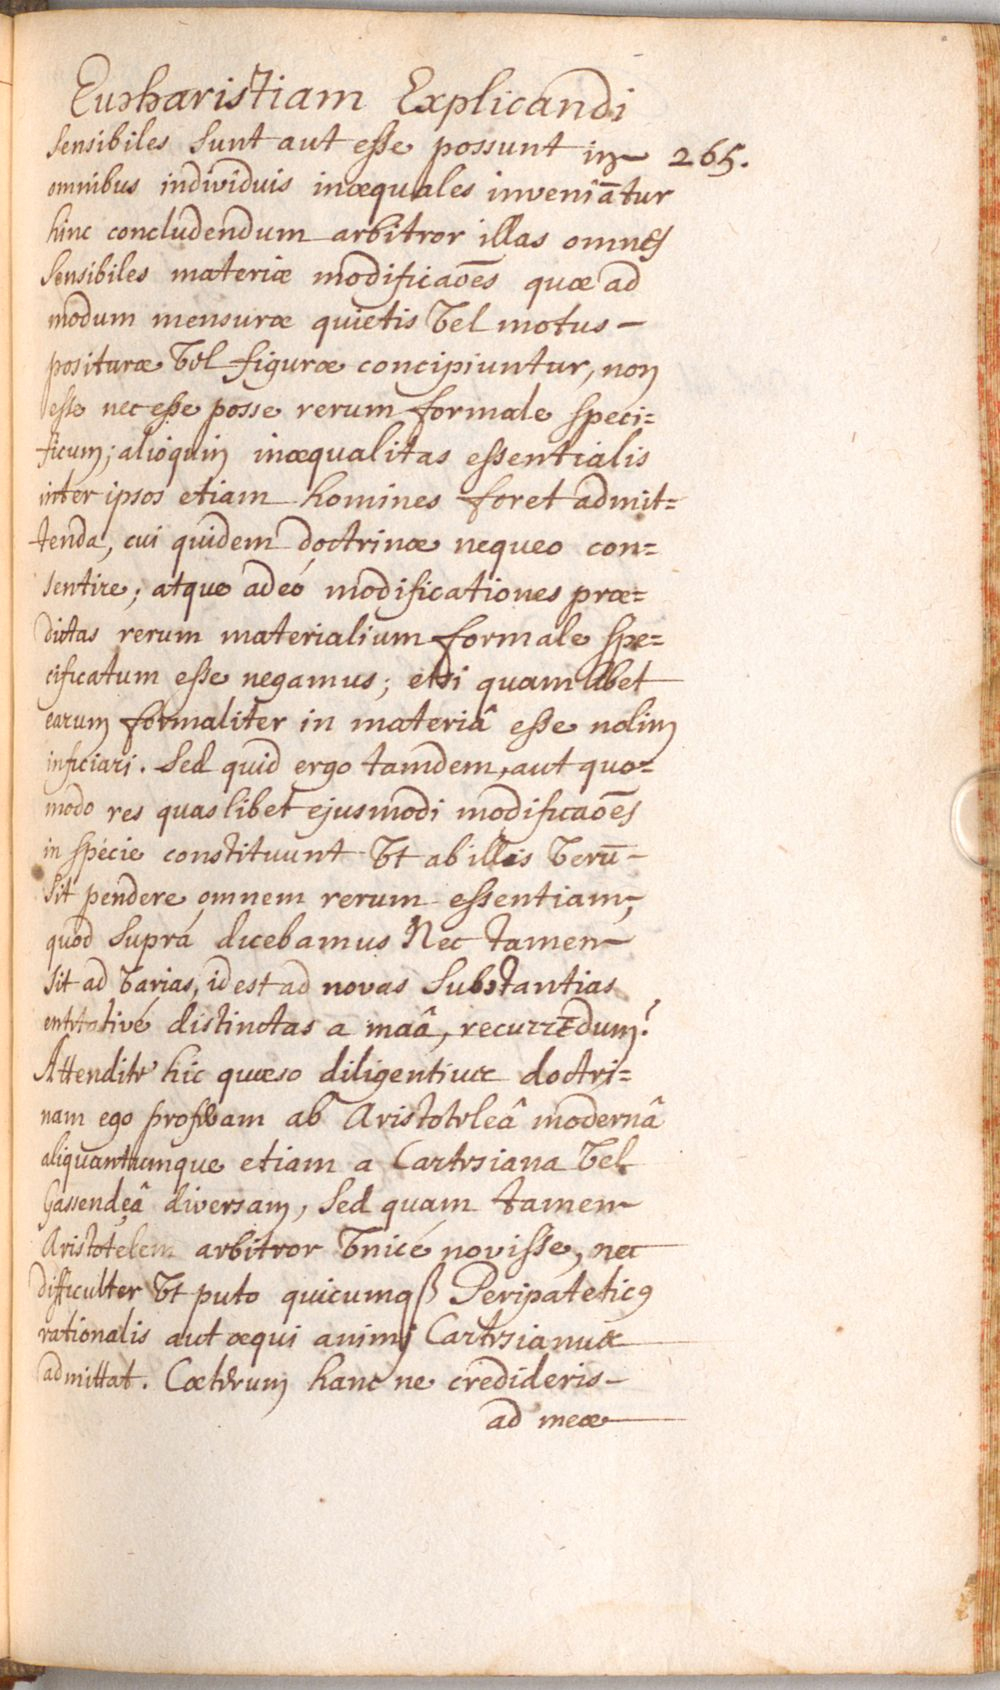 Eucharistiam Explicandi
sensibiles sunt aut esse possunt in 265.
omnibus individuis inæquales inveniātur
hinc concludendum arbitror illas omnes
sensibiles materiæ modificaōes quæ ad
modum mensuræ quietis vel motus –
posituræ vel figuræ concipiuntur, non
esse nec esse posse rerum formale speci=
ficum; alioquin inæqualitas essentialis
inter ipsos etiam homines foret admit=
tenda, cui quidem doctrinæ nequeo con=
sentire; atque adeó modificationes præ=
dictas rerum materialium formale spe=
cificatum esse negamus; etsi quamlibet
earum formaliter in materiâ esse nolim
inficiari. Sed quid ergo tamdem, aut quo=
modo res quaslibet ejusmodi modificaōes
in specie constituunt vt ab illis verū –
sit pendere omnem rerum essentiam,
quod suprá dicebamus Nec tamen
sit ad varias, id est ad novas substantias
entitativé distinctas a maâ, recurrēdum?
Attendite hic quæso diligentius doctri=
nam ego proferam ab Aristoteleâ modernâ
aliquantumque etiam a Cartesiana vel
Gassendeâ diversam, sed quam tamen
Aristotelem arbitror vnicé novisse, nec
difficulter vt puto quicumqß Peripateticꝯ
rationalis aut æqui animi Cartesianus
admittat. Cæterum hanc ne credideris –
ad meæ